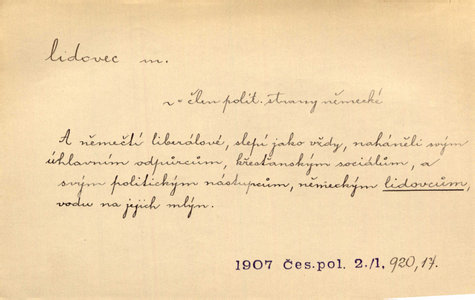 lidovec m.
člen polit. strany německé
A němečtí liberálové, slepí jako vždy, naháněli svým
úhlavním odpůrcům, křesťanským sociálům, a
svým politickým nástupcům, německým lidovcům,
vodu na jejich mlýn.
1907 Čes. pol. 2./1, 920, 17.